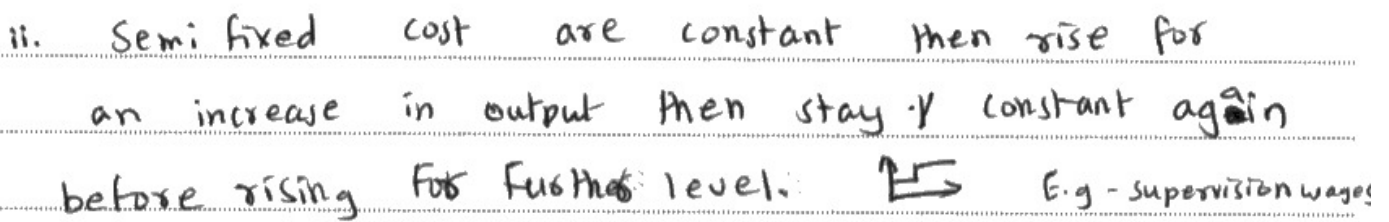 ii. Semi fixed cost are constant then rise for
an increase in output then stay constant again
before rising for further level. E.g - supervision wages